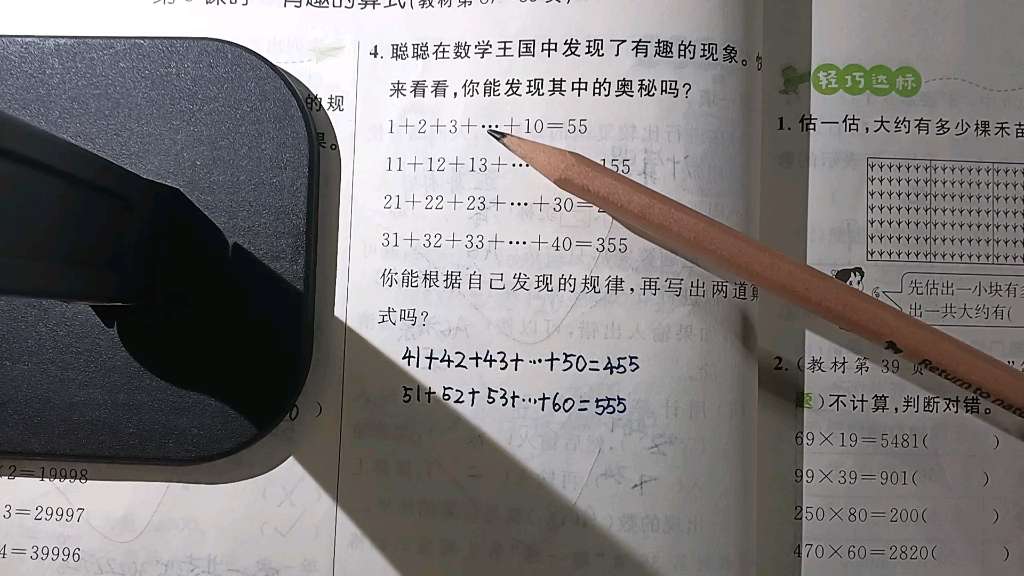 有趣的算式(教材第
的规
。
)
×2=19998
3=29997
4=39996
4. 聪聪在数学王国中发现了有趣的现象。
来看看,你能发现其中的奥秘吗?
1+2+3+…+10=55
11+12+13+… 155
21+22+23+…+30=
31+32+33+…+40=355
你能根据自己发现的规律,再写出两道算
式吗?
41+42+43+…+50=455
51+52+53+…+60=555
轻巧达标
1. 估一估,大约有多少棵禾苗
先估出一小块有
出一共大约有(
2. (教材第 39 页
题)不计算,判断对错。
Return to nat
69×19=5481( )
99×39=901( )
250×80=200( )
470×60=2820( )